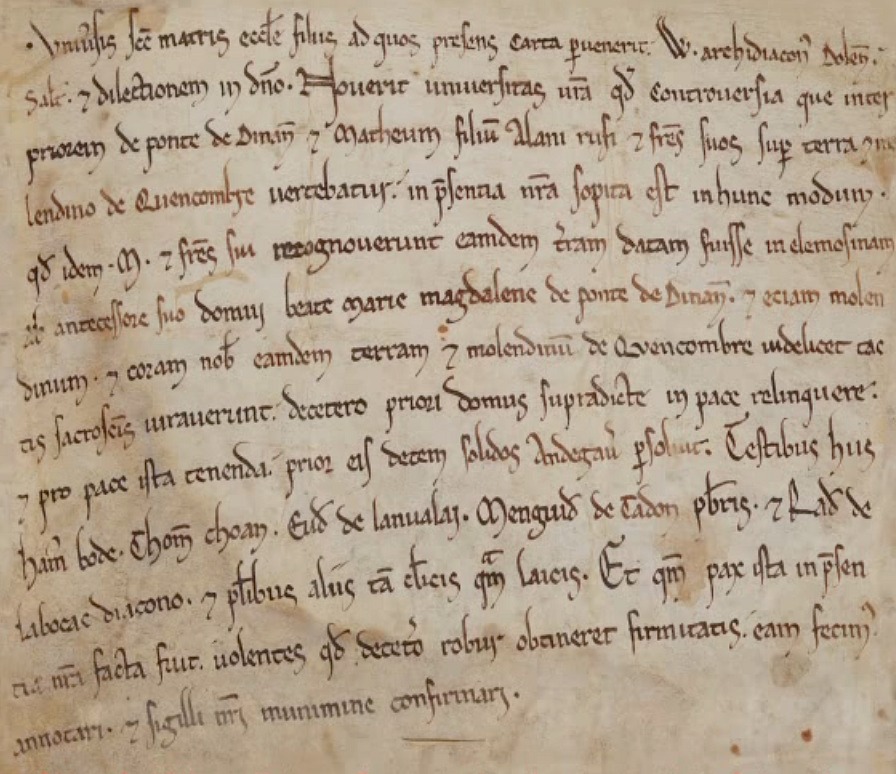 · Vniv̄sis sc̄e matris eccl̄e filiis ad quos presens carta p̱venerit. W. archidiacon᾽ Dolen̄.
Salt̄. ⁊ dilectionem in dn̄o. Noverit universitas vr̄a qđ controversia que inter
priorem de ponte de Dinan̄ ⁊ Matheum filiū Alani rufi ⁊ fr̄es suos sup̱ terra ⁊ mo
lendino de Quencombre vertebatur. in p̄sentia nr̄a sopita est in hunc modum.
qđ idem .M. ⁊ fr̄es sui recognoverunt eamdem t̄ram datam fuisse in elemosinam
antecessore suo domui beate Marie magdalene de ponte de Dinan̄. ⁊ eciam molen
dinum. ⁊ coram nob̄ eamdem terram ⁊ molendinū de Quencombre videlicet tac
tis sacrosc̄is iuraverunt. decetero priori domus supradicte in pace relinquere.
⁊ pro pace ista tenenda. prior eis decem solidos Andegav̄ p̱solvit. Testibus hiis
ham̄ bode. Thom̄ choan. Euđ de lanvalai. Menguiđ de Tadon pb̄ris. ⁊ Rađ de
labocac diacono. ⁊ pl̄ibus aliis tā cl̄icis qᵃm̄ laicis. Et qm̄ pax ista in p̄sen
tia nr̄a facta fuit. volentes qđ decet̄o robur obtineret firmitatis. eam fecim᾽
annotari. ⁊ sigilli nr̄i munimine confirmari.